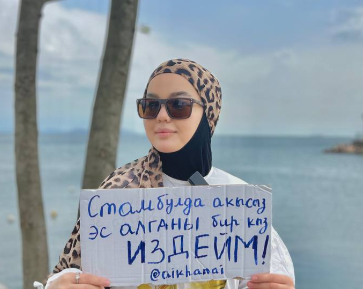 Стамбулда акысыз
эс алганы бир кыз
ИЗДЕЙМ!
@aikhanai